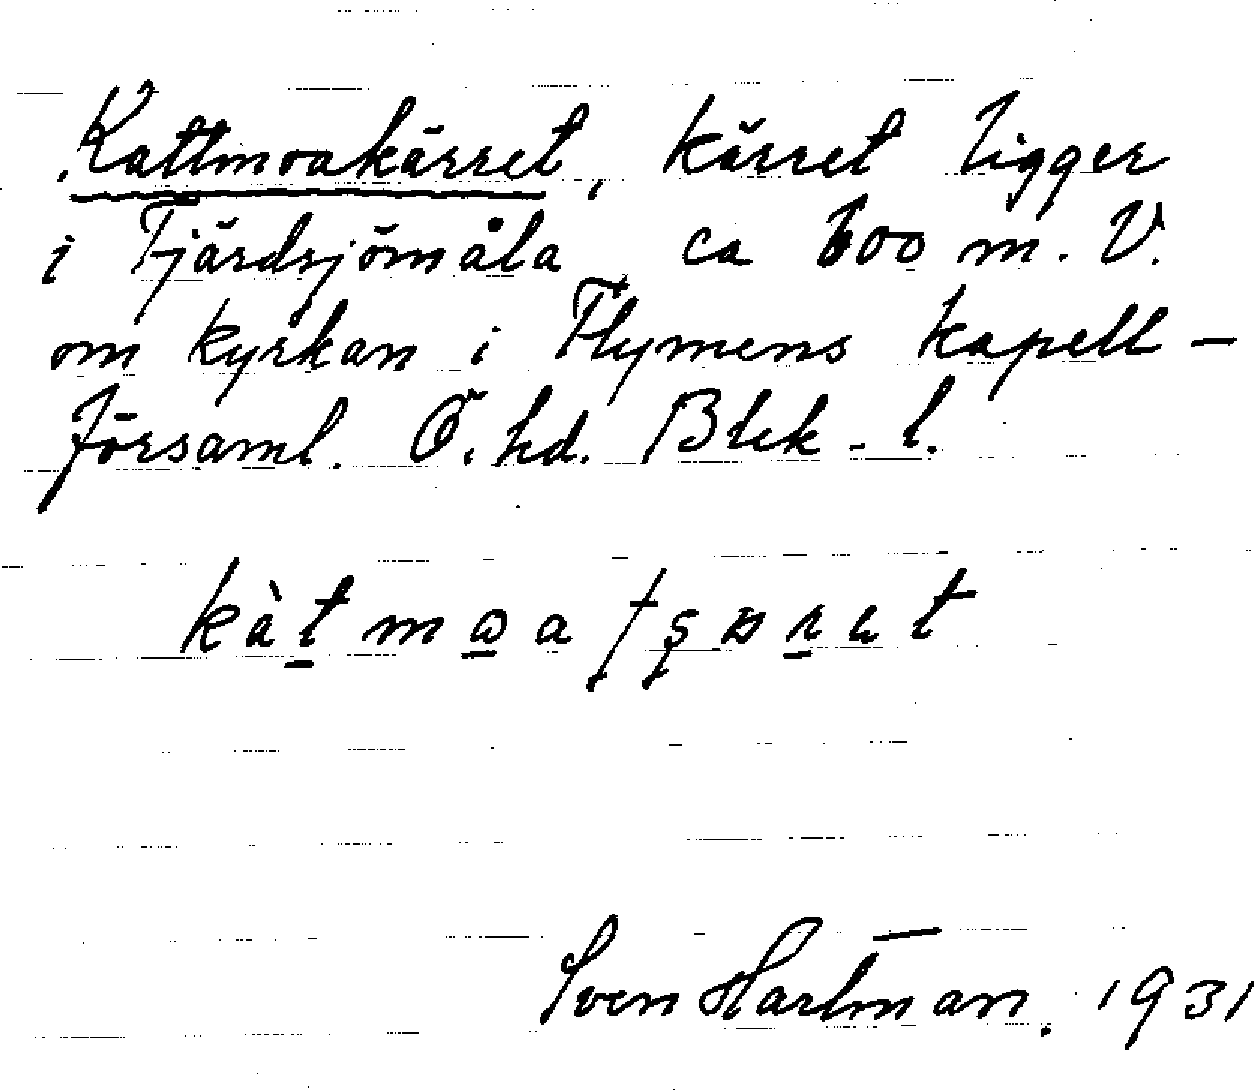 Kattmoakärret, kärret ligger
i Fjärdsjömåla ca 600 m. V.
om kyrkan i Flymens kapell-
församl. Ö. hd. Blek. l.
Sven Hartman. 1931